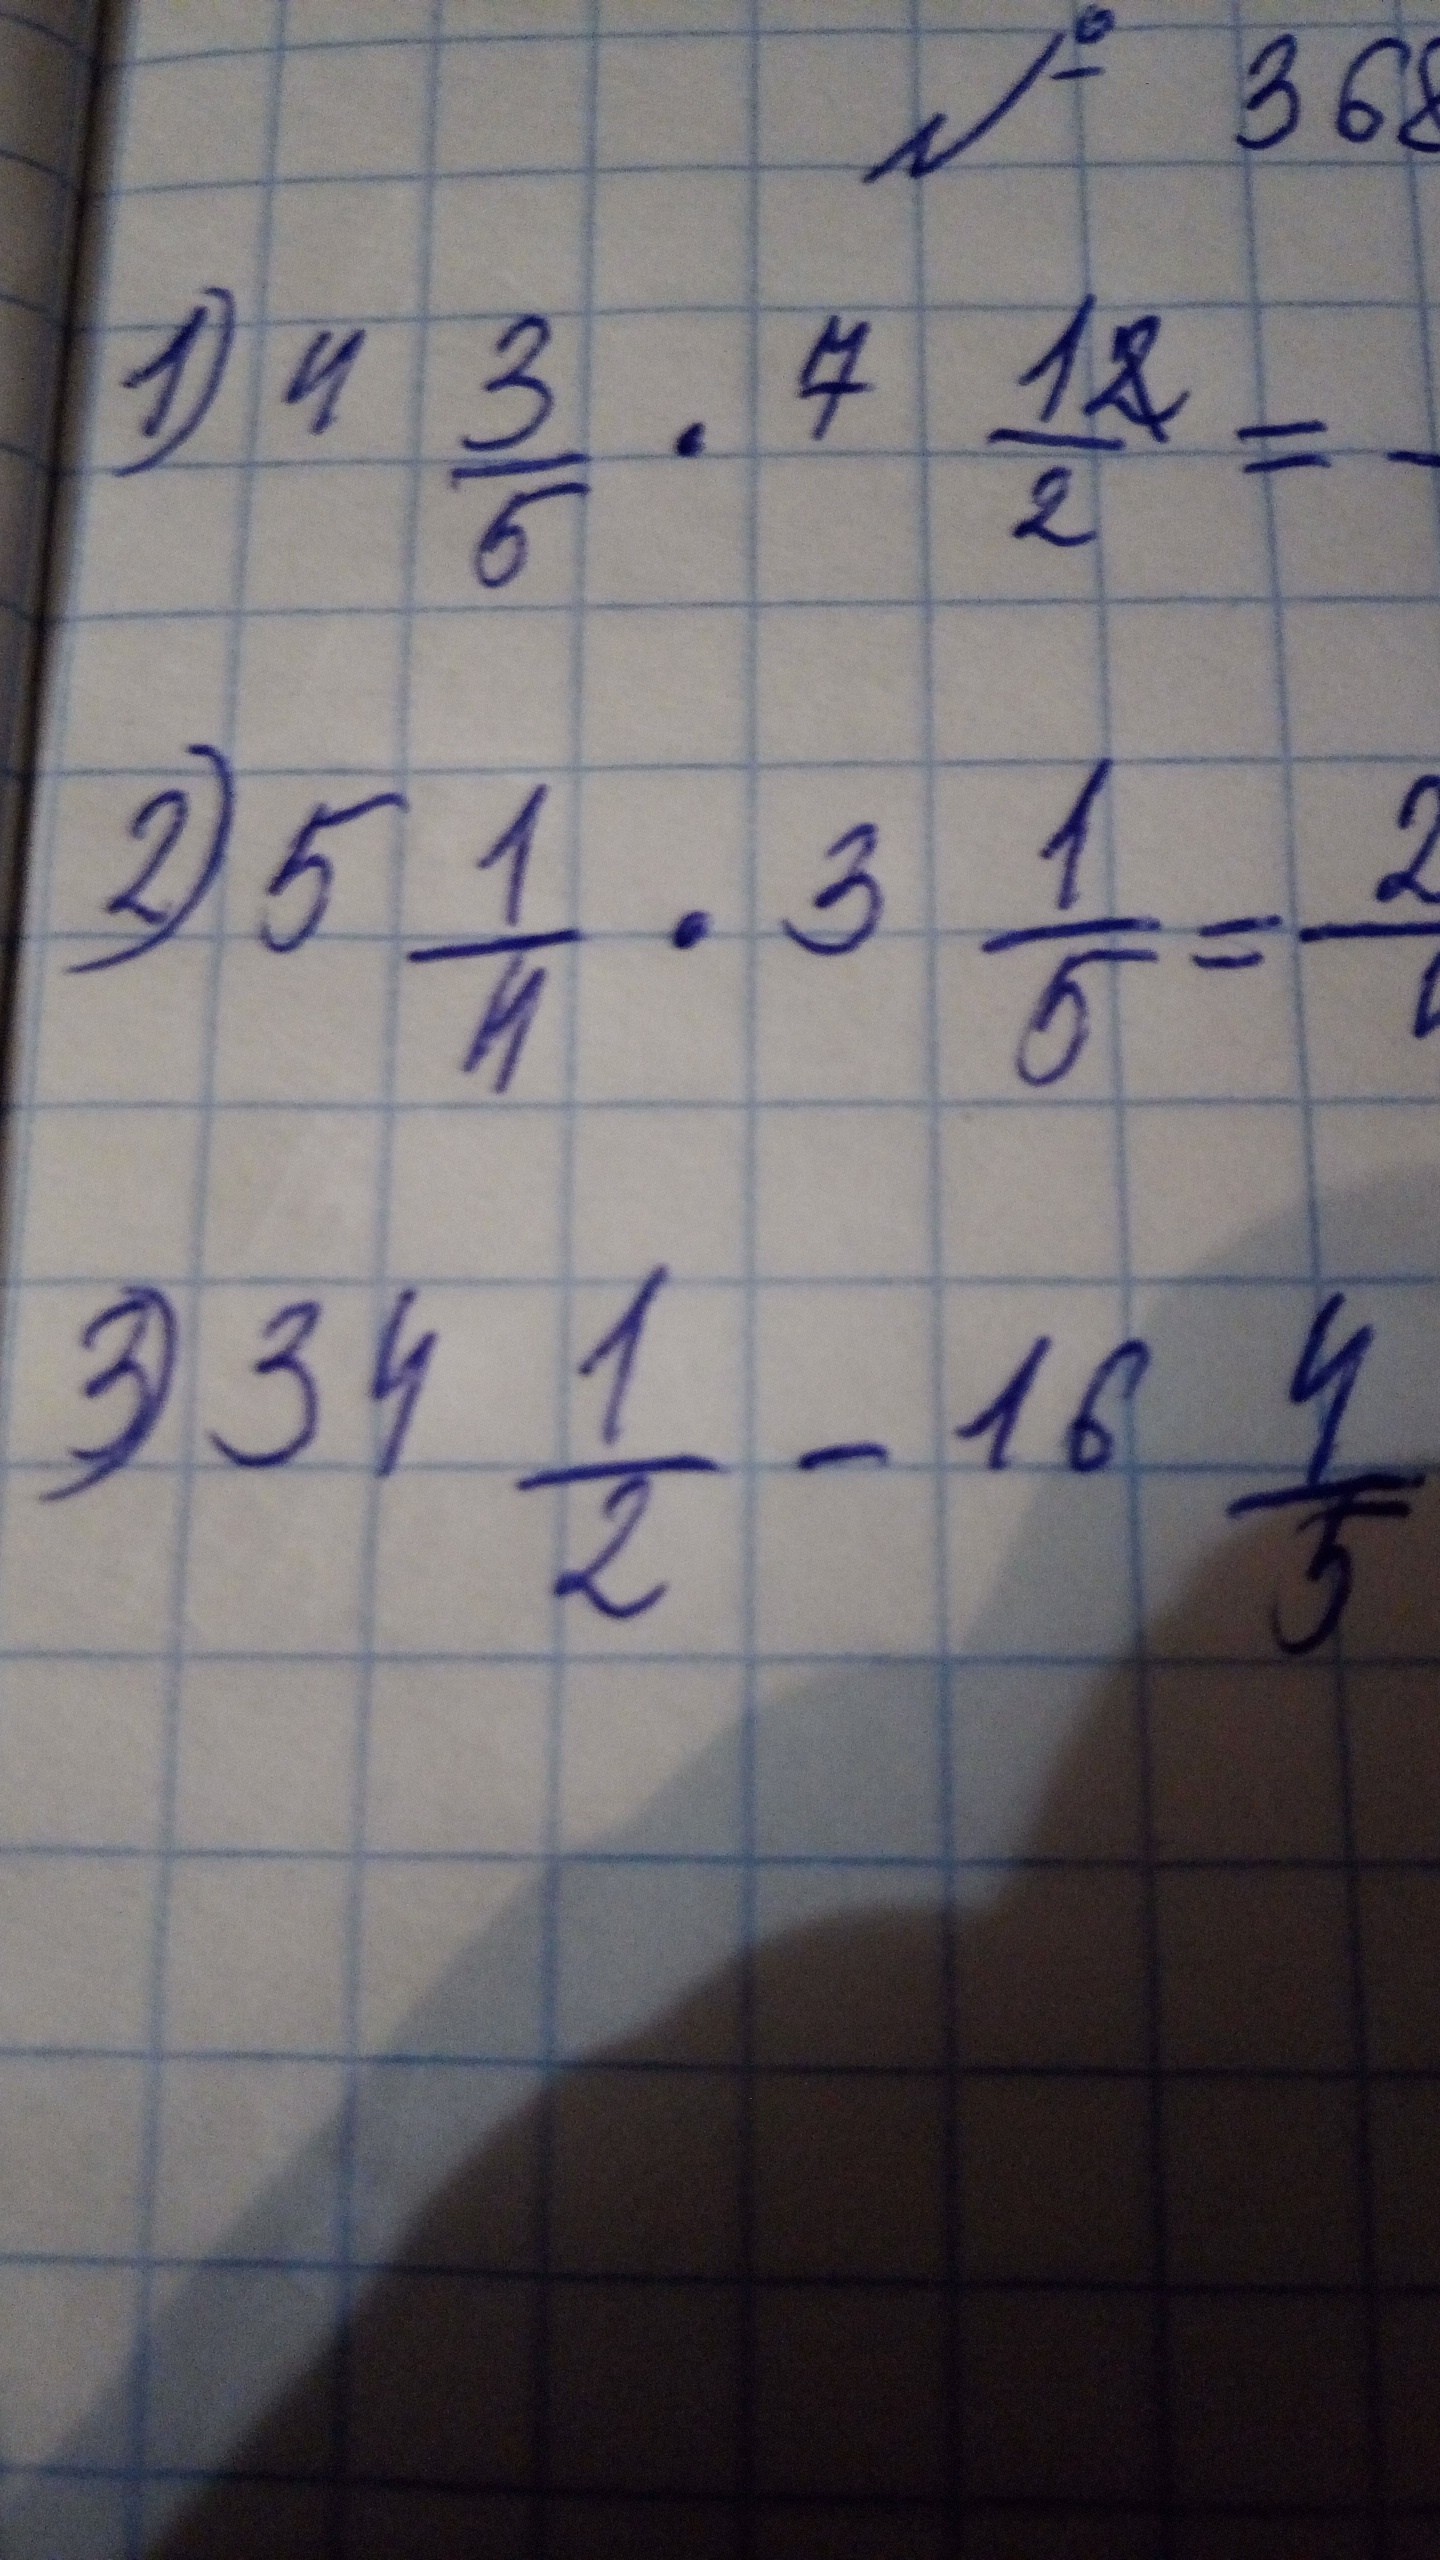 № 368
1) 4 3/5 · 7 1/2 =
2) 5 1/4 · 3 1/5 = 2
3) 34 1/2 - 16 4/5